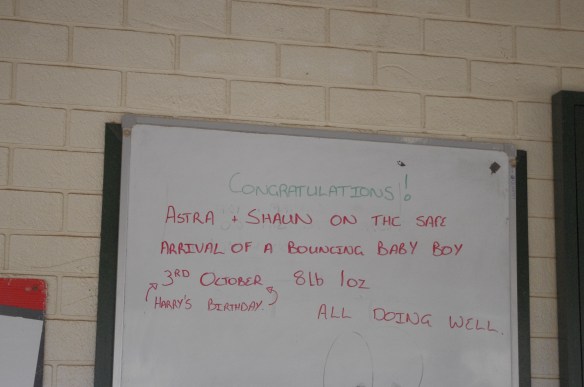 CONGRATULATIONS!
ASTRA + SHAUN ON THE SAFE
ARRIVAL OF A BOUNCING BABY BOY
3RD OCTOBER 8lb 1oz
HARRY'S BIRTHDAY.
ALL DOING WELL.